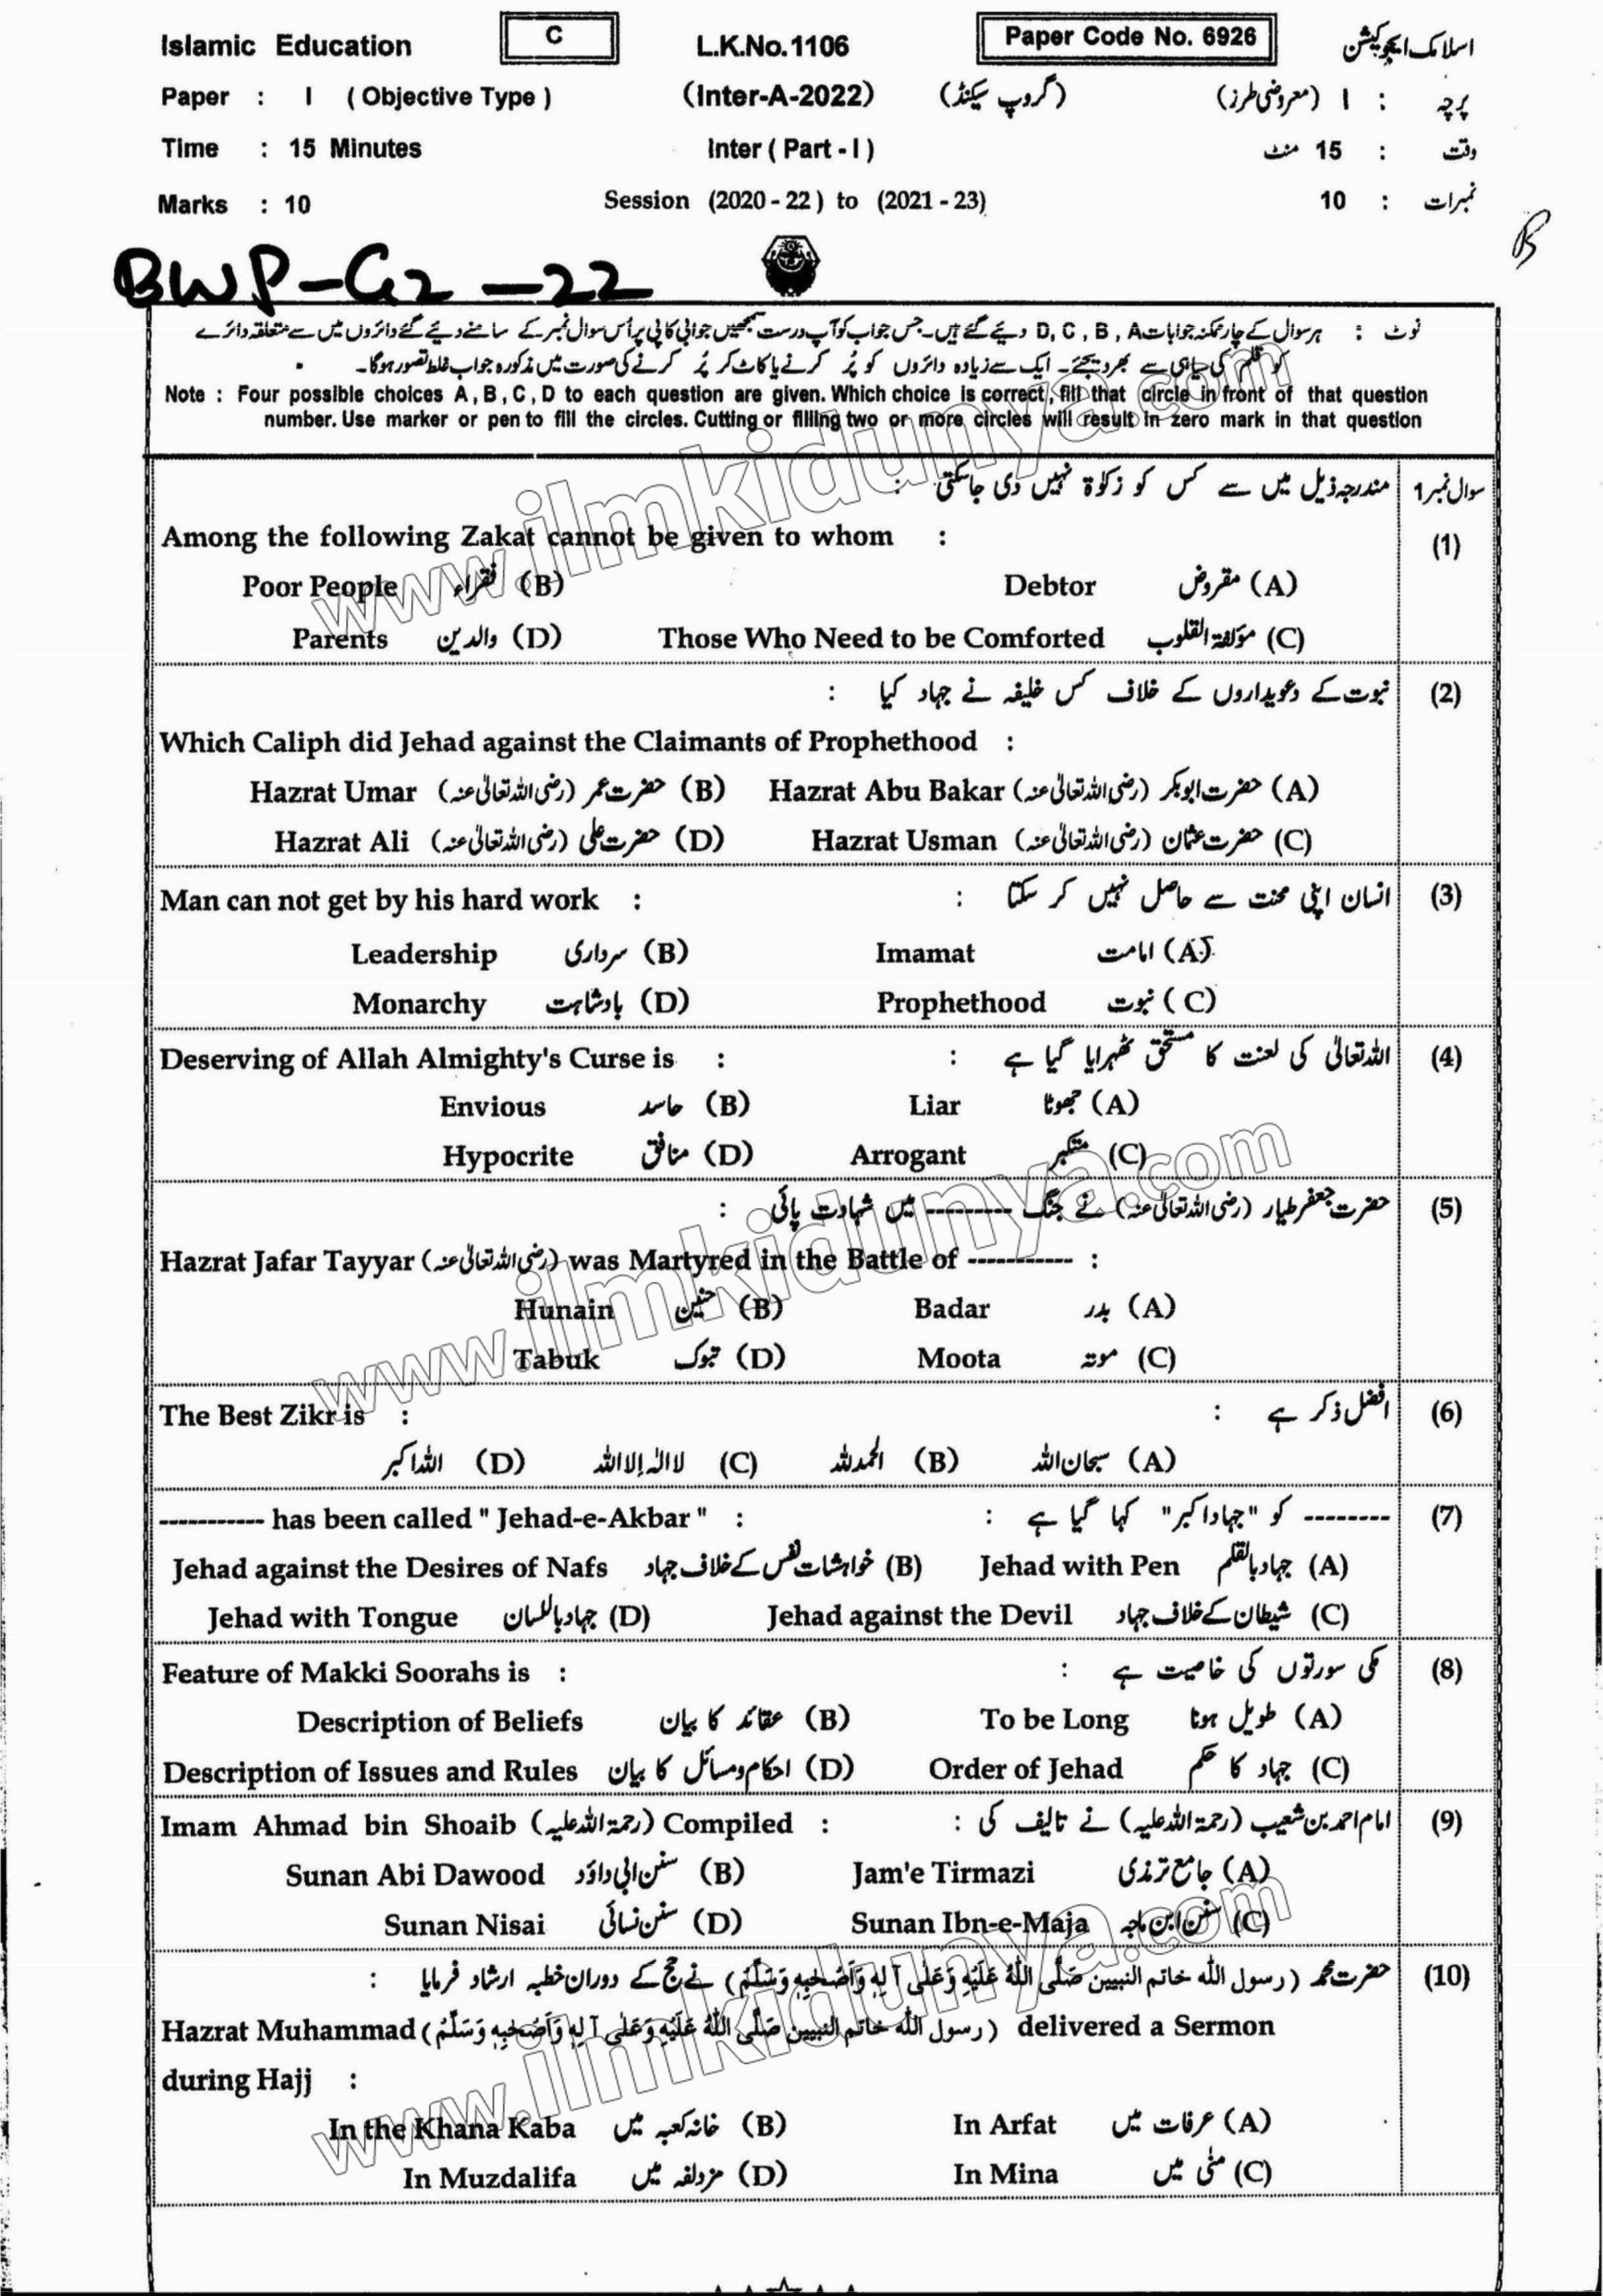 Islamic Education C L.K.No.1106 Paper Code No. 6926 اسلامک ایجوکیشن
Paper : I ( Objective Type ) (Inter-A-2022) (گروپ سیکنڈ) پرچہ : I (معروضی طرز)
Time : 15 Minutes Inter ( Part - I ) وقت : 15 منٹ
Marks : 10 Session (2020 - 22 ) to (2021 - 23) نمبرات : 10
BWP-G2-22
نوٹ : ہر سوال کے چار ممکنہ جوابات D, C, B, A دیئے گئے ہیں۔ جس جواب کو آپ درست سمجھیں جوابی کاپی پر اُس سوال نمبر کے سامنے دیئے گئے دائروں میں سے متعلقہ دائرے
کو قلم کی سیاہی سے بھر دیجئے۔ ایک سے زیادہ دائروں کو پُر کرنے یا کاٹ کر پُر کرنے کی صورت میں مذکورہ جواب غلط تصور ہوگا۔
Note : Four possible choices A, B, C, D to each question are given. Which choice is correct, fill that circle in front of that question
number. Use marker or pen to fill the circles. Cutting or filling two or more circles will result in zero mark in that question
سوال نمبر 1 مندرجہ ذیل میں سے کس کو زکوٰۃ نہیں دی جا سکتی :
(1) Among the following Zakat cannot be given to whom :
(A) مقروض Debtor (B) فقراء Poor People
(C) مؤلفۃ القلوب Those Who Need to be Comforted (D) والدین Parents
(2) نبوت کے دعویداروں کے خلاف کس خلیفہ نے جہاد کیا :
Which Caliph did Jehad against the Claimants of Prophethood :
(A) حضرت ابوبکر (رضی اللہ تعالیٰ عنہ) Hazrat Abu Bakar (B) حضرت عمر (رضی اللہ تعالیٰ عنہ) Hazrat Umar
(C) حضرت عثمان (رضی اللہ تعالیٰ عنہ) Hazrat Usman (D) حضرت علی (رضی اللہ تعالیٰ عنہ) Hazrat Ali
(3) انسان اپنی محنت سے حاصل نہیں کر سکتا : Man can not get by his hard work :
(A) امامت Imamat (B) سرداری Leadership
(C) نبوت Prophethood (D) بادشاہت Monarchy
(4) اللہ تعالیٰ کی لعنت کا مستحق ٹھہرایا گیا ہے : Deserving of Allah Almighty's Curse is :
(A) جھوٹا Liar (B) حاسد Envious
(C) متکبر Arrogant (D) منافق Hypocrite
(5) حضرت جعفر طیار (رضی اللہ تعالیٰ عنہ) نے جنگ --------- میں شہادت پائی :
Hazrat Jafar Tayyar (رضی اللہ تعالیٰ عنہ) was Martyred in the Battle of ----------- :
(A) بدر Badar (B) حنین Hunain
(C) موتہ Moota (D) تبوک Tabuk
(6) افضل ذکر ہے : The Best Zikr is :
(A) سبحان اللہ (B) الحمد للہ (C) لا الہ الا اللہ (D) اللہ اکبر
(7) -------- کو "جہاد اکبر" کہا گیا ہے : ----------- has been called " Jehad-e-Akbar " :
(A) جہاد بالقلم Jehad with Pen (B) خواہشات نفس کے خلاف جہاد Jehad against the Desires of Nafs
(C) شیطان کے خلاف جہاد Jehad against the Devil (D) جہاد باللسان Jehad with Tongue
(8) مکی سورتوں کی خاصیت ہے : Feature of Makki Soorahs is :
(A) طویل ہونا To be Long (B) عقائد کا بیان Description of Beliefs
(C) جہاد کا حکم Order of Jehad (D) احکام و مسائل کا بیان Description of Issues and Rules
(9) امام احمد بن شعیب (رحمۃ اللہ علیہ) نے تالیف کی : Imam Ahmad bin Shoaib (رحمۃ اللہ علیہ) Compiled :
(A) جامع ترمذی Jam'e Tirmazi (B) سنن ابی داؤد Sunan Abi Dawood
(C) سنن ابن ماجہ Sunan Ibn-e-Maja (D) سنن نسائی Sunan Nisai
(10) حضرت محمد (رسول اللہ خاتم النبیین صَلَّی اللہُ عَلَیْہِ وَعَلٰی آلِہٖ وَاَصْحٰبِہٖ وَسَلَّمَ) نے حج کے دوران خطبہ ارشاد فرمایا :
Hazrat Muhammad (رسول اللہ خاتم النبیین صَلَّی اللہُ عَلَیْہِ وَعَلٰی آلِہٖ وَاَصْحٰبِہٖ وَسَلَّمَ) delivered a Sermon
during Hajj :
(A) عرفات میں In Arfat (B) خانہ کعبہ میں In the Khana Kaba
(C) منٰی میں In Mina (D) مزدلفہ میں In Muzdalifa
www.ilmkidunya.com
www.ilmkidunya.com
www.ilmkidunya.com